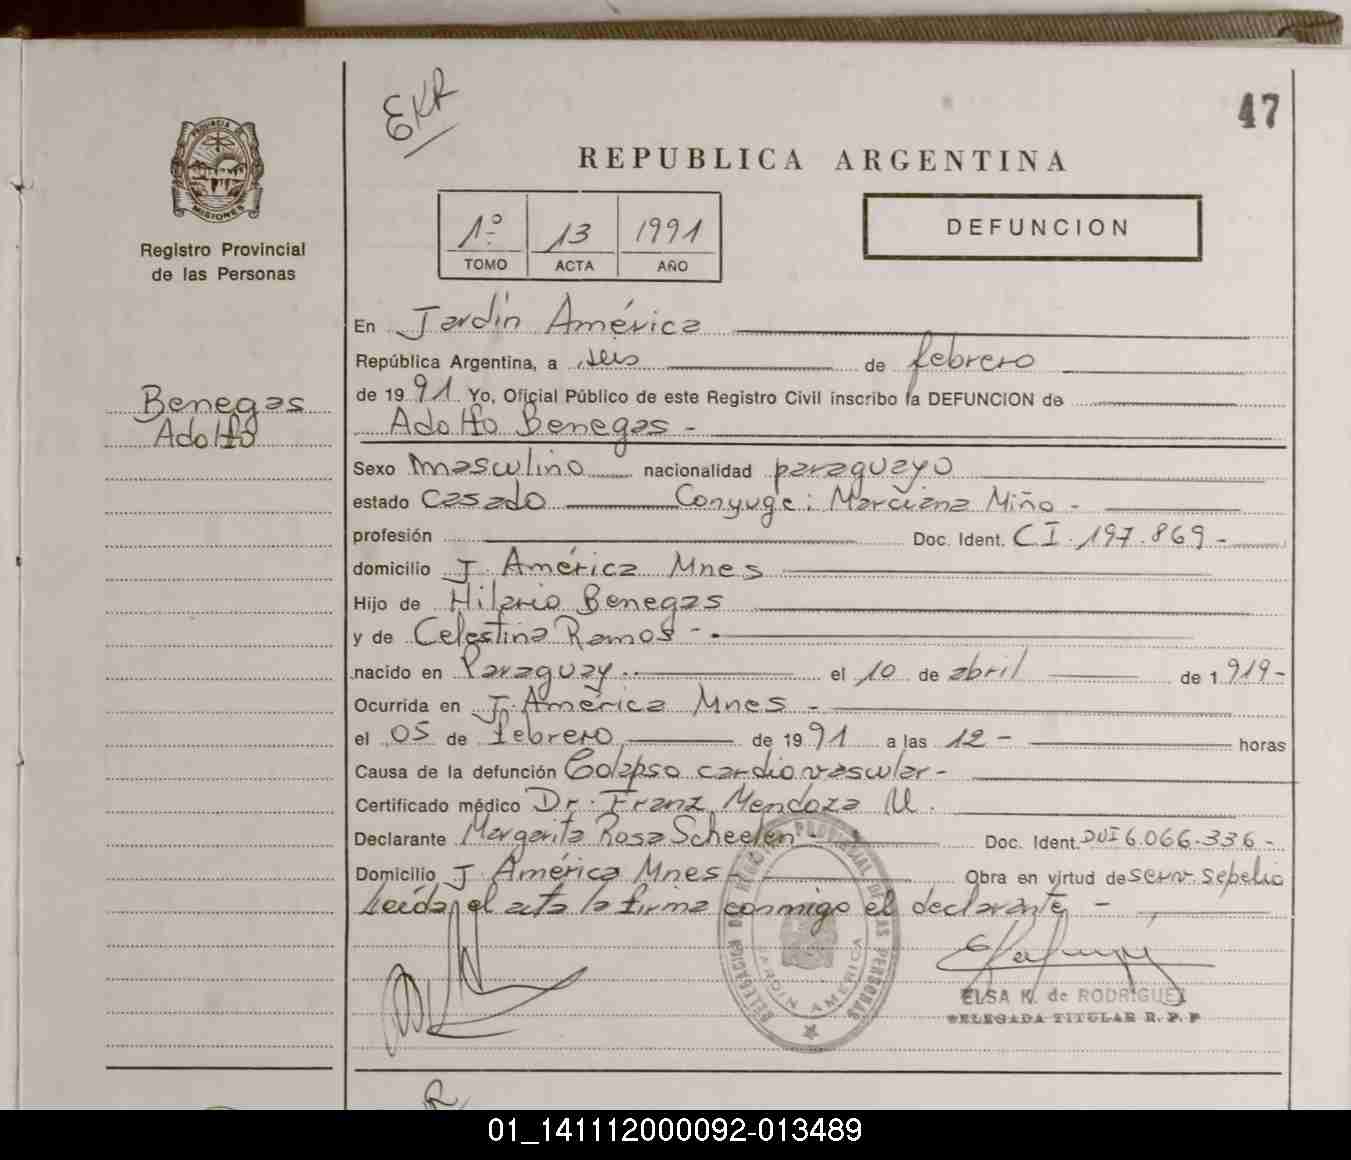 EKR
47
PROVINCIA DE
MISIONES
Registro Provincial
de las Personas
REPUBLICA ARGENTINA
1º 13 1991
TOMO ACTA AÑO
DEFUNCION
Benegas
Adolfo
En Jardín América
República Argentina, a seis de febrero
de 19 91 Yo, Oficial Público de este Registro Civil inscribo la DEFUNCION de
Adolfo Benegas -
Sexo masculino nacionalidad paraguayo
estado Casado Conyuge: Marciana Miño -
profesión Doc. Ident. CI. 197.869 -
domicilio J. América Mnes
Hijo de Hilario Benegas
y de Celestina Ramos -
nacido en Paraguay el 10 de abril de 1 919 -
Ocurrida en J. América Mnes -
el 05 de febrero de 19 91 a las 12 - horas
Causa de la defunción Colapso cardiovascular -
Certificado médico Dr. Franz Mendoza M.
Declarante Margarita Rosa Scheelen Doc. Ident. DUI 6.066.336 -
Domicilio J América Mnes - Obra en virtud de serv. sepelio
Leída el acta la firma conmigo el declarante -
DELEGACION DEL REGISTRO PROVINCIAL DE LAS PERSONAS
JARDIN AMERICA
ELSA K. de RODRIGUEZ
DELEGADA TITULAR R. P. P
01_141112000092-013489